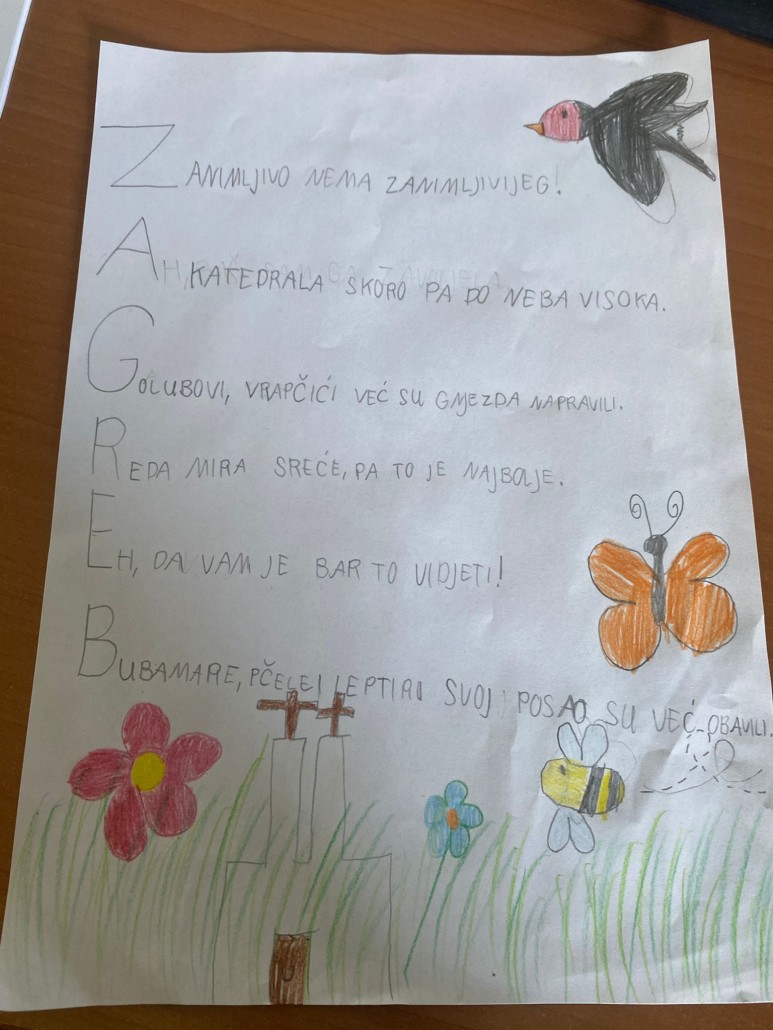 ZANIMLJIVO NEMA ZANIMLJIVIJEG!
AH, KATEDRALA SKORO PA DO NEBA VISOKA.
GOLUBOVI, VRAPČIĆI VEĆ SU GNJEZDA NAPRAVILI.
REDA MIRA SREĆE, PA TO JE NAJBOLJE.
EH, DA VAM JE BAR TO VIDJETI!
BUBAMARE, PČELE I LEPTIRI SVOJ POSAO SU VEĆ OBAVILI.